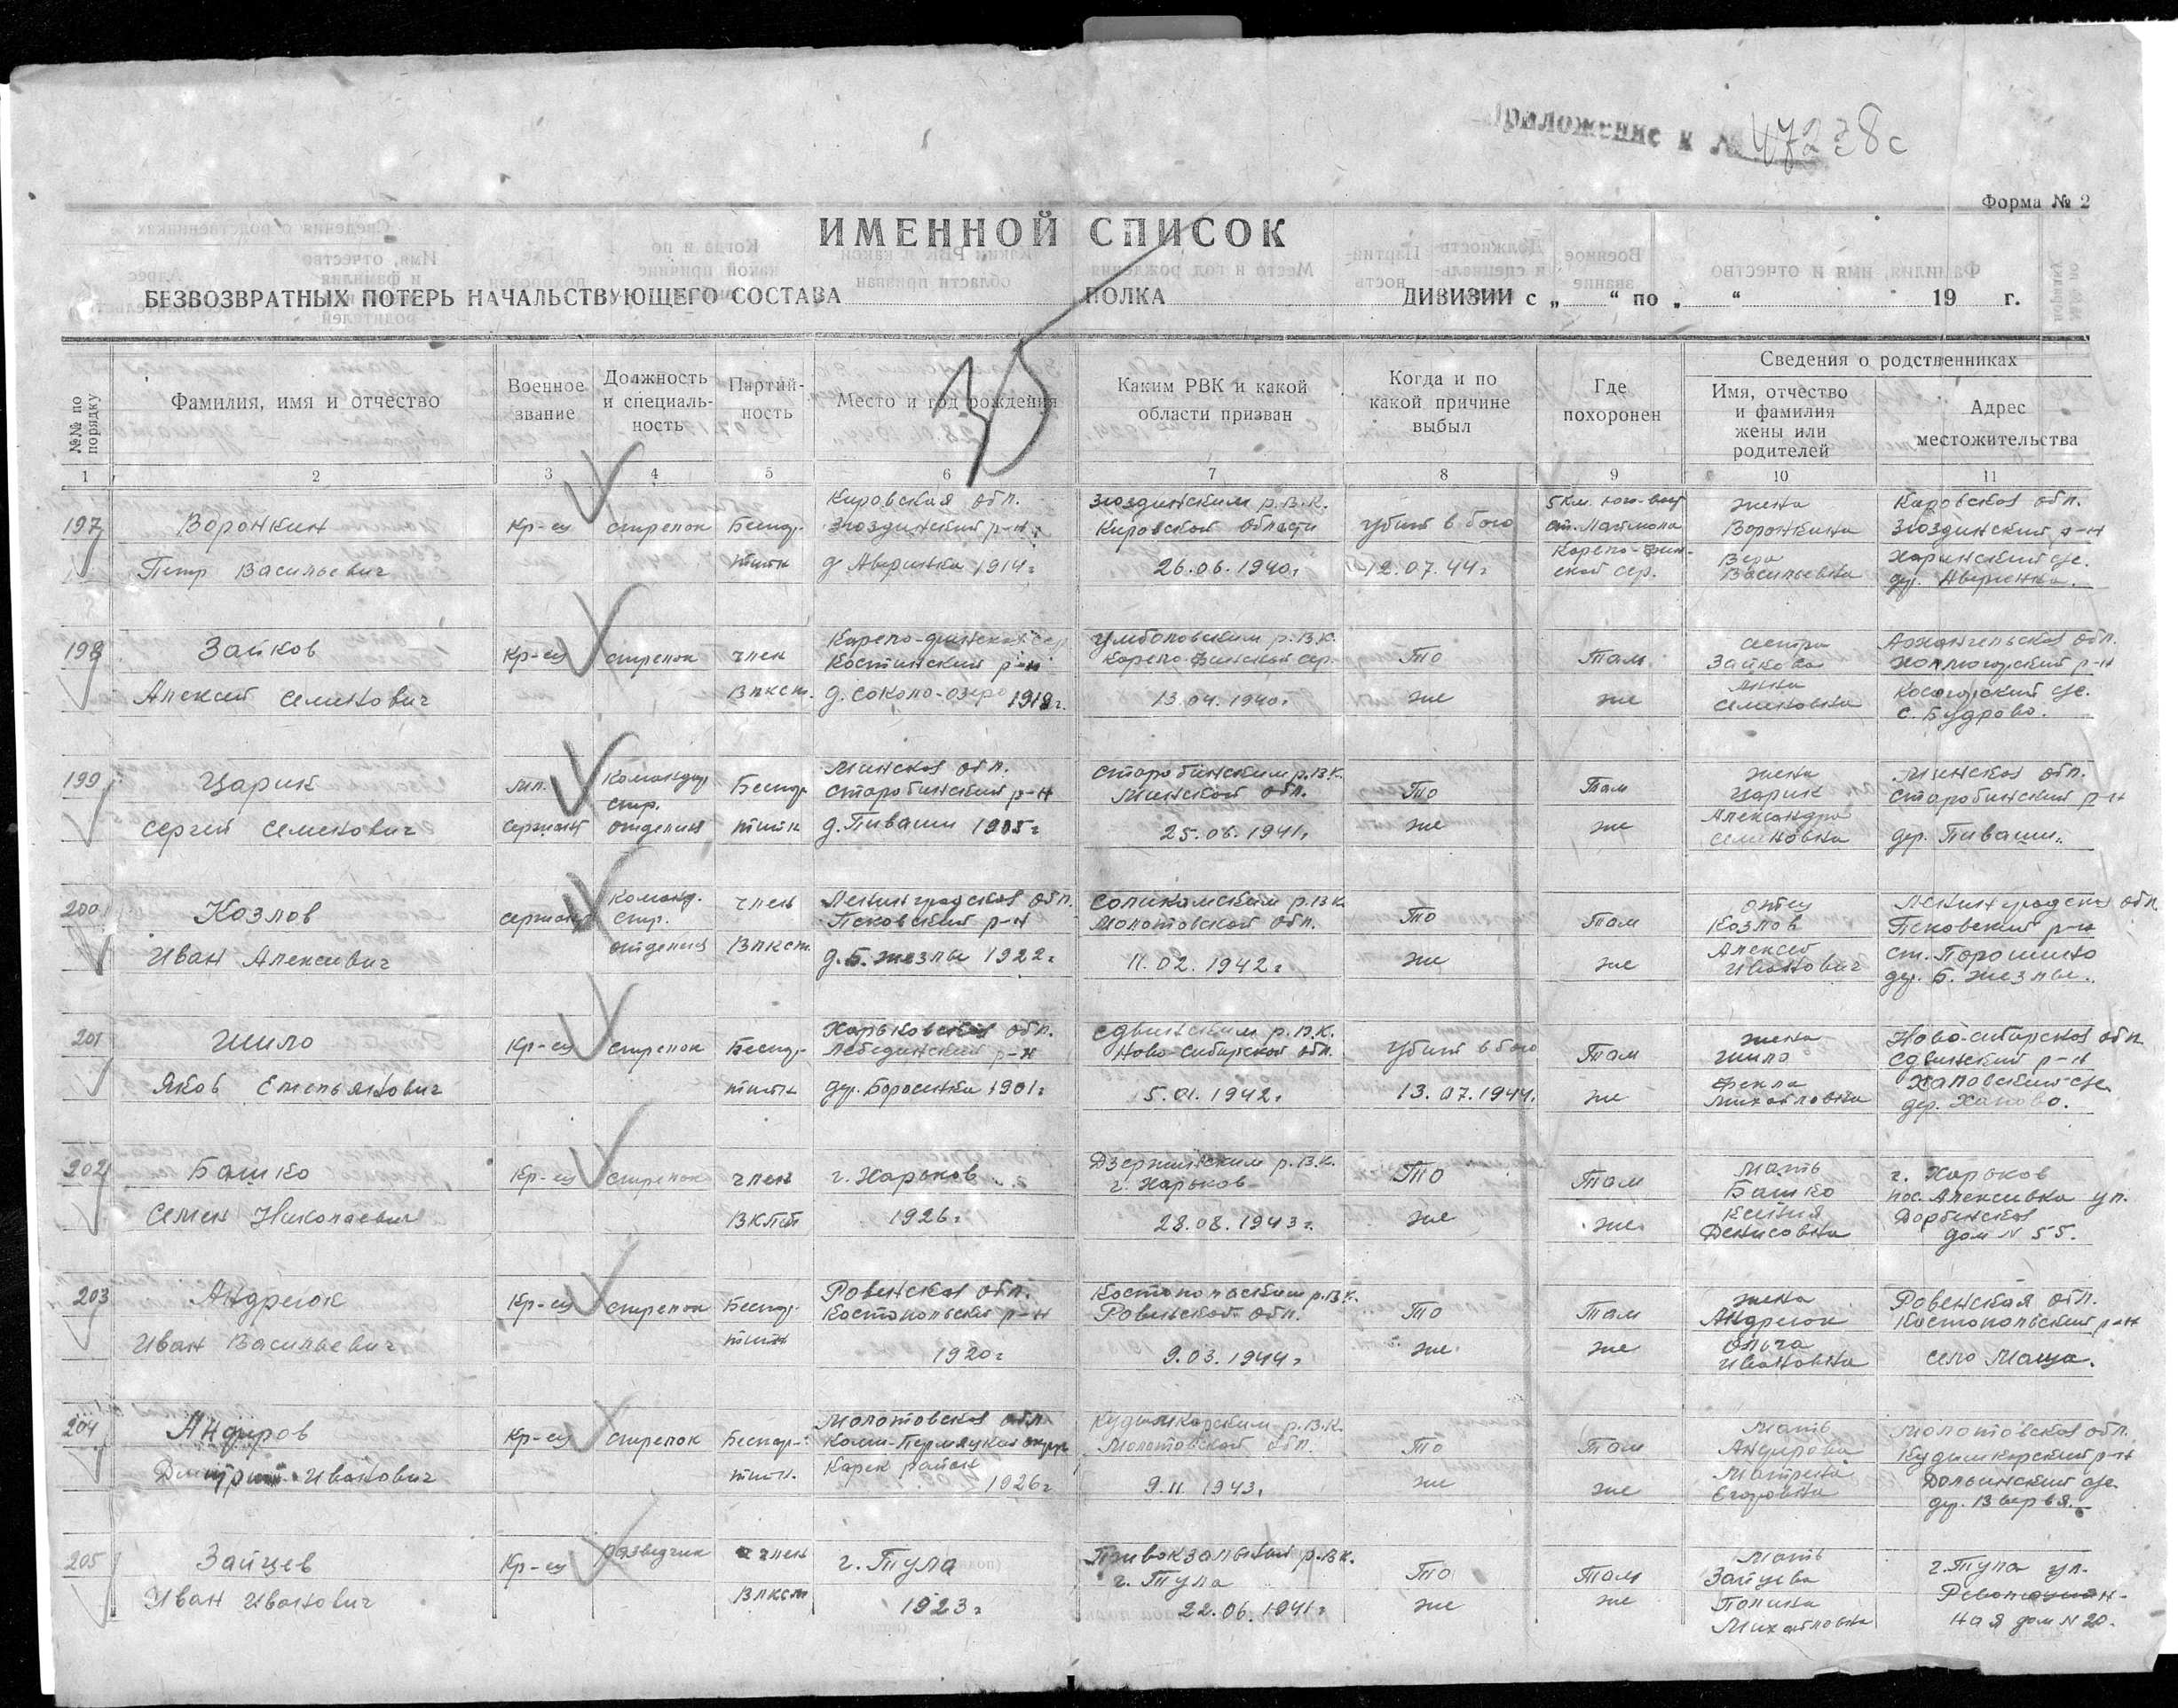 Приложение к № 47238с
Форма № 2
ИМЕННОЙ СПИСОК
БЕЗВОЗВРАТНЫХ ПОТЕРЬ НАЧАЛЬСТВУЮЩЕГО СОСТАВА ПОЛКА ДИВИЗИИ с „ “ по „ “ 19 г.
№№ по порядку
Фамилия, имя и отчество
Военное
звание
Должность
и специаль-
ность
Партий-
ность
Место и год рождения
Каким РВК и какой
области призван
Когда и по
какой причине
выбыл
Где
похоронен
Сведения о родственниках
Имя, отчество
и фамилия
жены или
родителей
Адрес
местожительства
1 2 3 4 5 6 7 8 9 10 11
197
Воронкин
Петр Васильевич
Кр-ец
стрелок
Беспар-
тийн
Кировская обл.
Зюздинский р-н
д Аверинка 1914г
Зюздинским р.в.к.
Кировской области
26.06.1940г
убит в бою
12.07.44г
5 км. юго-вост
ст. Лаймола
Карело-Фин-
ской сср.
жена
Воронкина
Вера
Васильевна
Кировская обл.
Зюздинский р-н
Харинский с/с.
др. Аверинка.
198
Зайков
Алексей Семенович
Кр-ец
стрелок
член
Влксм.
Карело-финская сср
Костинский р-н
д. Соколо-озеро 1918г.
Карело-Финской сср.
13.04.1940г
То
же
Там
же
сестра
Зайкова
Анна
Семеновна
Архангельская обл.
Холмогорский р-н
с. Будрово.
199
Царик
Сергей Семенович
Мл.
сержант
Командир
стр.
отделения
Беспар-
тийн
Минская обл.
Старобинский р-н
д. Пиваши 1905г
Старобинским р.в.к.
Минской обл.
25.06.1941г
То
же
Там
же
жена
Царик
Александра
Семеновна
Минская обл.
Старобинский р-н
др. Пиваши.
200
Козлов
Иван Алексевич
сержант
Команд.
стр.
отделения
член
Влксм.
Ленинградская обл.
Псковский р-н
д. Б. жезлы 1922г
Соликамским р.в.к
Молотовской обл.
11.02.1942г
То
же
Там
же
отец
Козлов
Алексей
Иванович
Ленинградская обл
Псковский р-н
ст. Порошино
др. Б. Жезлы.
201
Шило
Яков Емельянович
Кр-ец
стрелок
Беспар-
тийн
Харьковская обл.
Лебединский р-н
др. Боросенка 1901г
Сдвинским р.в.к.
Ново-Сибирской обл.
5.01.1942г
убит в бою
13.07.1944.
Там
же
жена
Шило
Фекла
Михайловна
Ново-сибирская обл
Сдвинский р-н
Хаповский с/с
дер. Хапово.
202
Башко
Семен Николаевич
Кр-ец
стрелок
член
ВКП(б)
г. Харьков
1926г
Дзержинским р.в.к.
г. Харьков
28.08.1943г.
То
же
Там
же
Мать
Башко
Ксения
Денисовна
г. Харьков
пос. Алексевка ул.
дом № 55.
203
Андреюк
Иван Васильевич
Кр-ец
стрелок
Беспар-
тийн
Ровенская обл.
Костопольский р-н
1920г
Костопольским р.в.к.
Ровенской обл.
9.03.1944г
То
же
Там
же
жена
Андреюк
Ольга
Ивановна
Ровенская обл.
Костопольский р-н
село Маща.
204
Анфиров
Дмитрий Иванович
Кр-ец
стрелок
Беспар-
тийн.
Молотовская обл
Коми-Пермяцкий округ
район
1926г
Кудымкорским р.в.к.
Молотовской обл.
9.11.1943г
То
же
Там
же
Мать
Анфирова
Матрена
Егоровна
Молотовская обл.
Кудымкорский р-н
205
Зайцев
Иван Иванович
Кр-ец
разведчик
член
Влксм
г. Тула
1923г
Привокзальным р.в.к.
г. Тула
22.06.1941г
То
же
Там
же
Мать
Зайцева
Полина
Михайловна
г. Тула ул.
Революцион-
ная дом № 20.